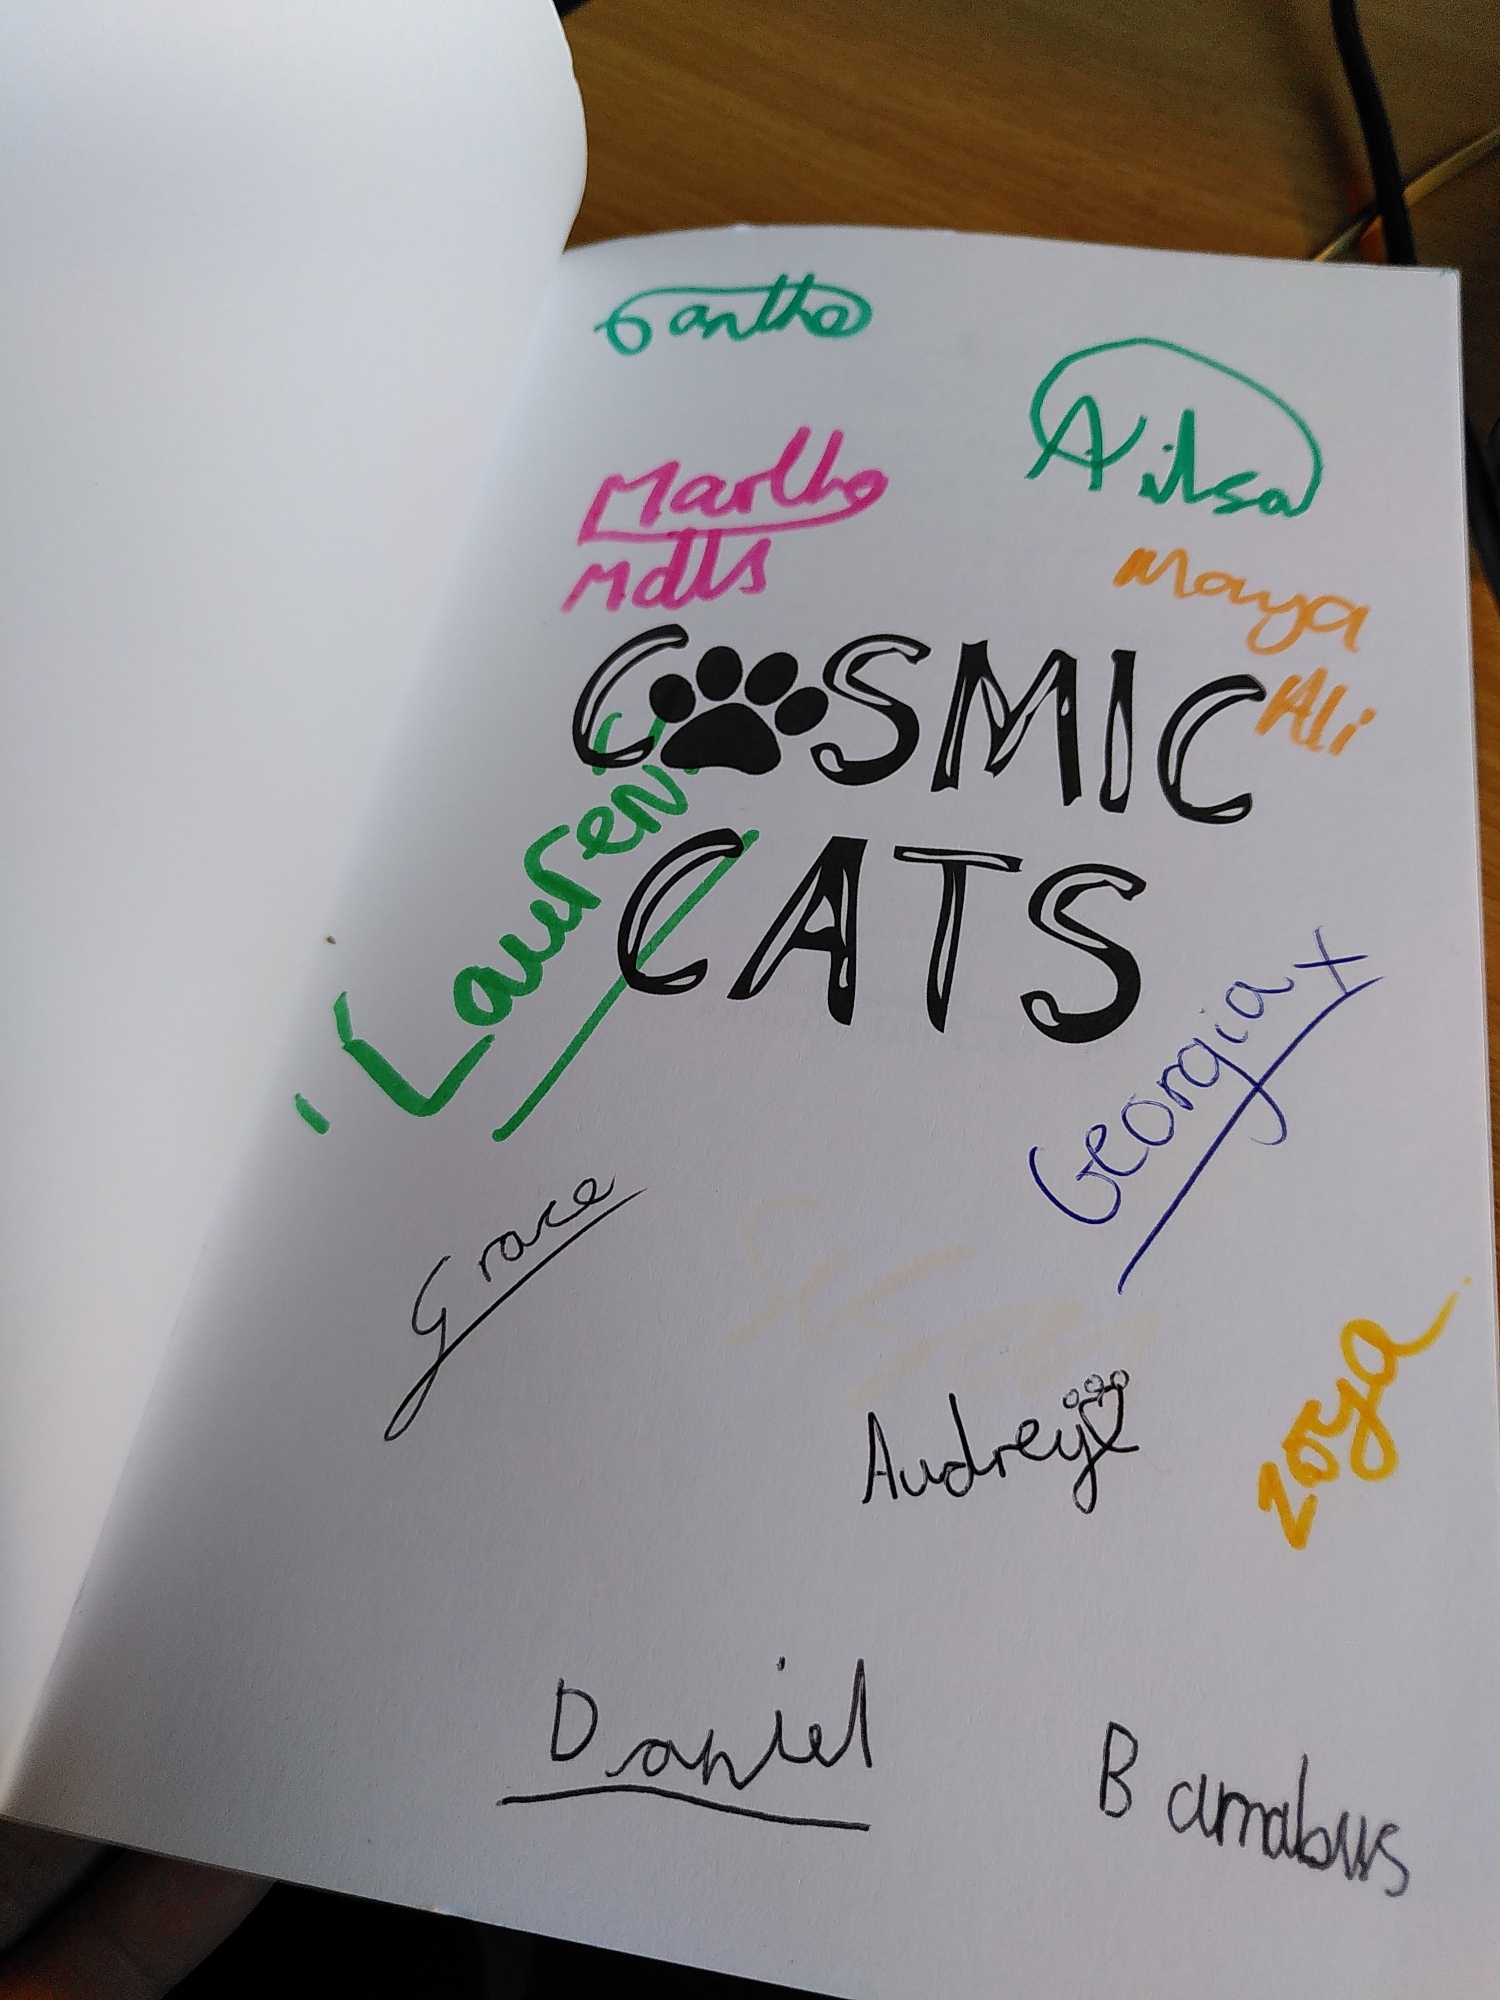 Ailsa
Martha
Maya
Ali
COSMIC
CATS
Lauren
Georgia x
Grace
Audrey
Zoya
Daniel
Barnabus